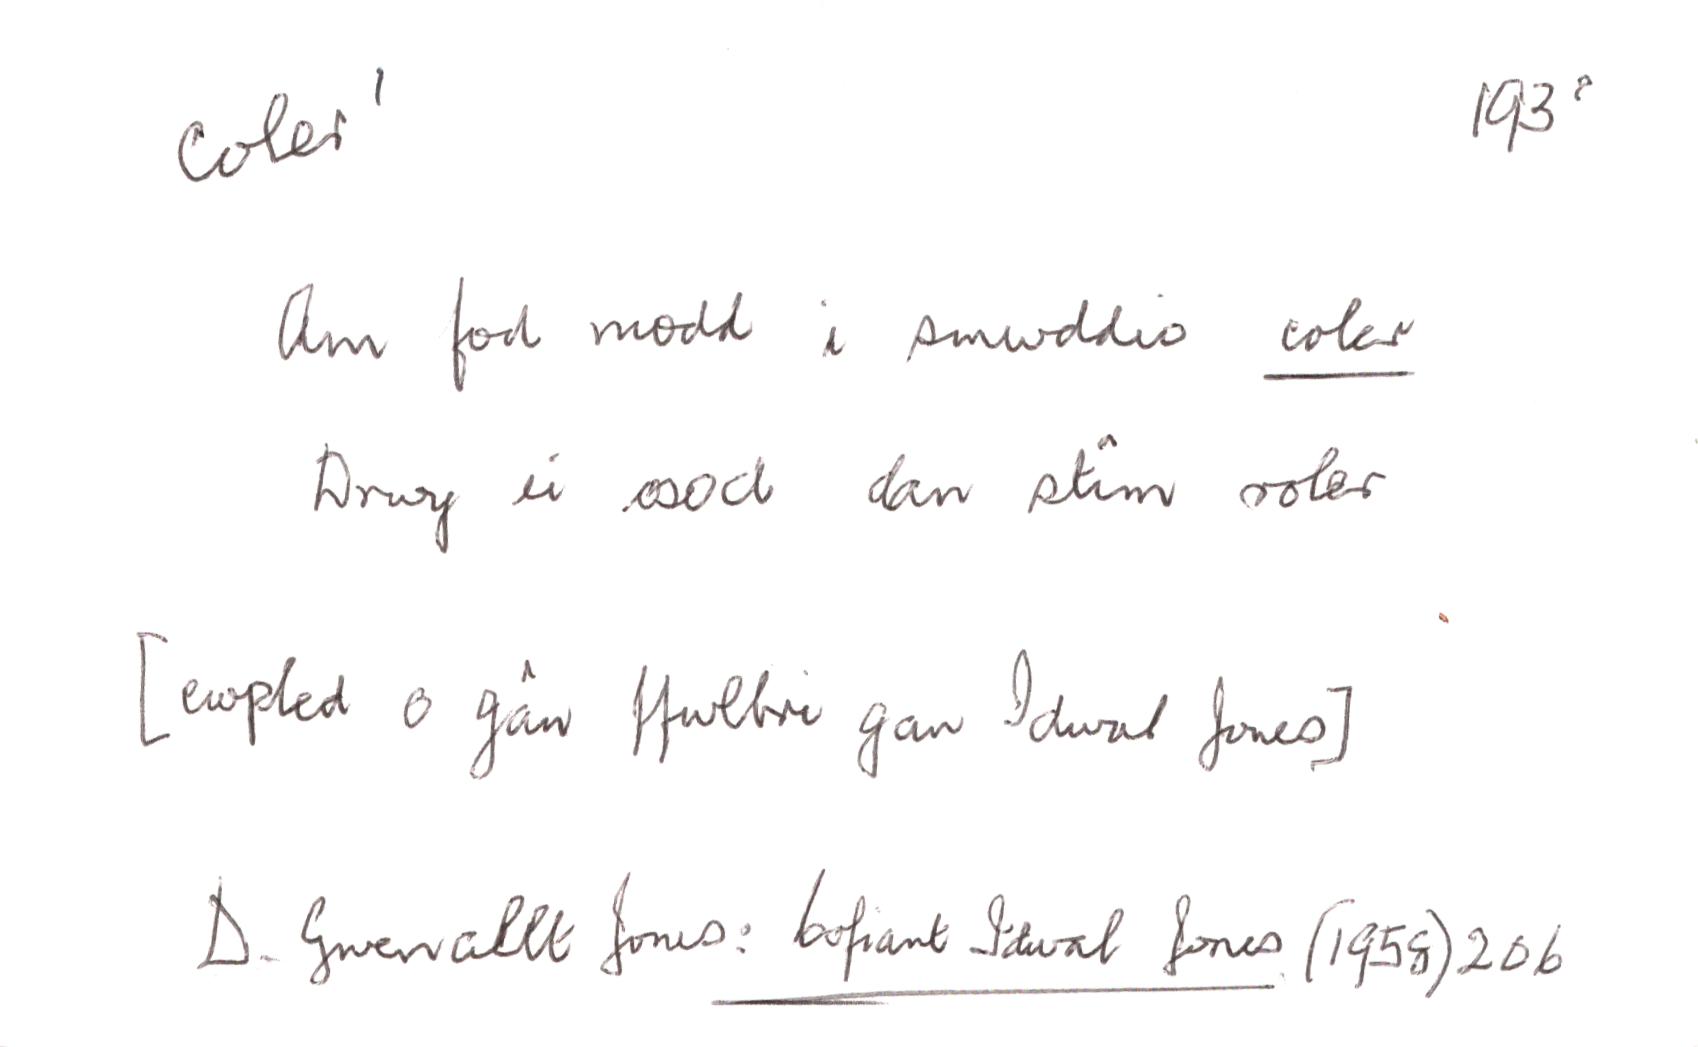 coler¹ 193?
Am fod modd i smwddio coler
Drwy ei osod dan stîm roler
[cwpled o gân ffwlbri gan Idwal Jones]
D. Gwenallt Jones: Cofiant Idwal Jones (1958) 206